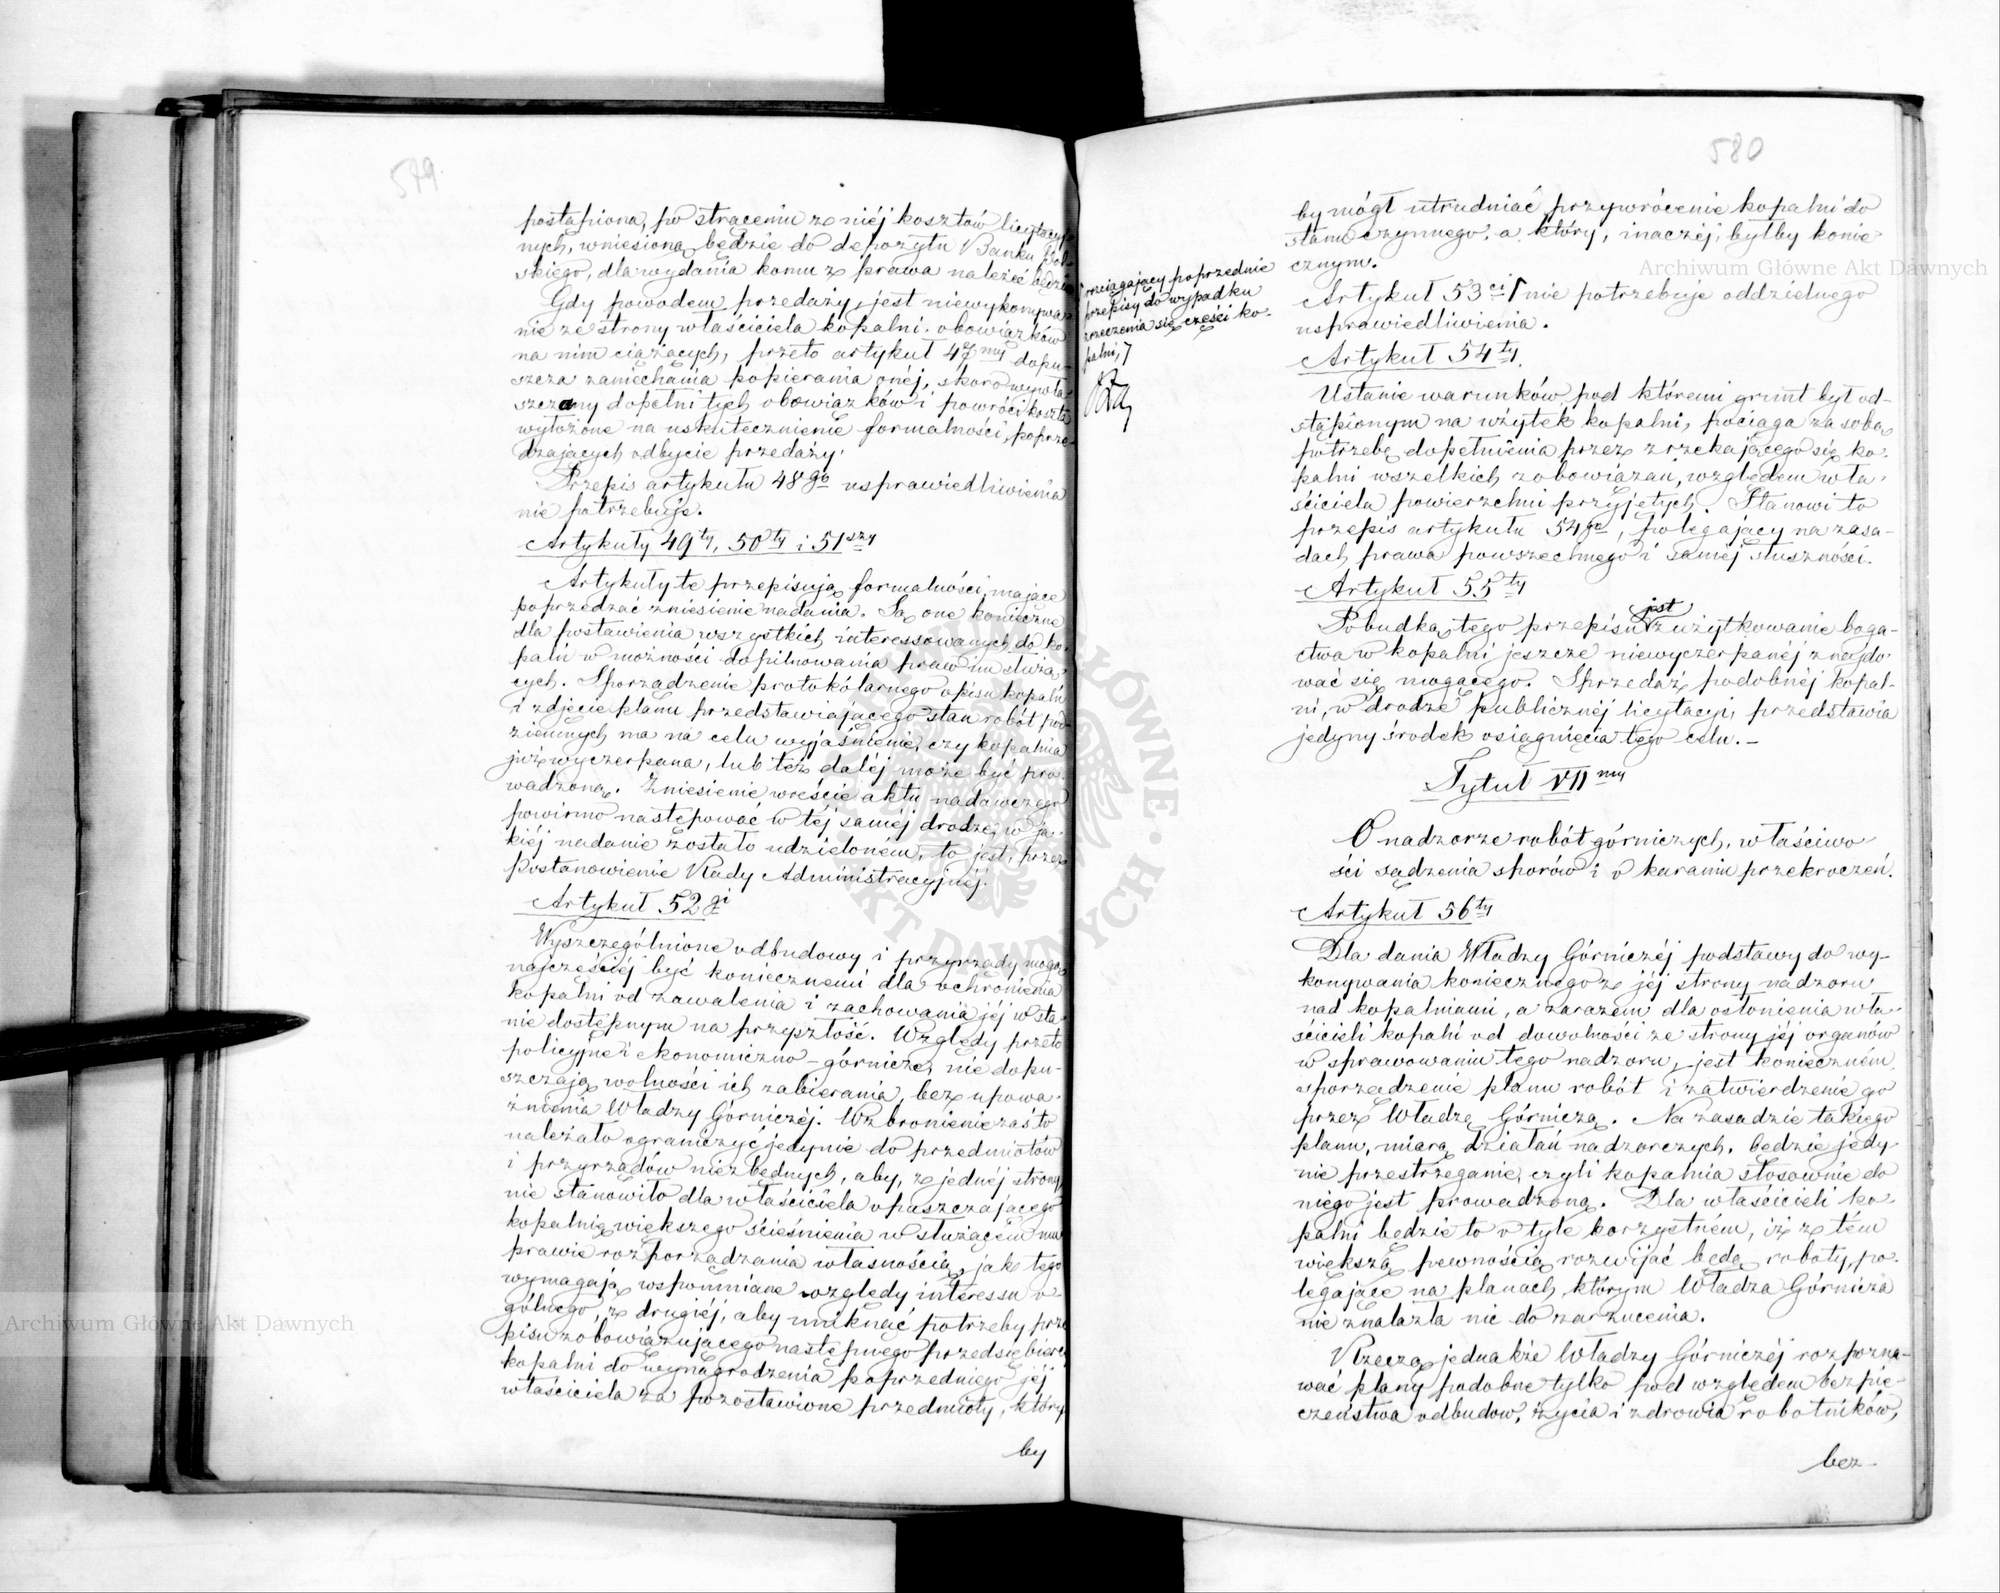 579.
postąpiona, po strąceniu z niéj kosztów licytacyj-
nych, wniesioną będzie do depozytu Banku Pol-
skiego, dla wydania komu z prawa należéć będzie
Gdy powodem przedaży, jest niewykonywa-
nie ze strony właściciela kopalni obowiązków
na nim ciążących, przeto artykuł 47my dopu-
szcza zaniechania popierania onéj, skoro wywła-
szczany dopełni tych obowiązków i powróci koszta
wyłożone na uskutecznienie formalności, poprze-
dzających odbycie przedaży.
Przepis artykułu 48go usprawiedliwienia
nie potrzebuje.
Artykuły 49ty, 50ty i 51szy
Artykuły te przepisują formalności, mające
poprzedzać zniesienie nadania. Są one konieczne
dla postawienia wszystkich interessowanych do ko-
palń w możności dopilnowania praw im służą-
cych. Sporządzenie protokólarnego opisu kopalni
i zdjęcie planu przedstawiającego stan robót pod-
ziemnych ma na celu wyjaśnienie, czy kopalnia
już wyczerpana, lub téż daléj może być pro-
wadzoną. Zniesienie wreście aktu nadawczego
powinno następować w téj saméj drodze, w ja-
kiéj nadanie zostało udzieloném, to jest, przez
Postanowienie Rady Administracyjnéj.
Artykuł 52gi
Wyszczególnione odbudowy i przyrządy mogą
najczęściéj być koniecznemi dla ochronienia
kopalni od zawalenia i zachowania jéj w sta-
nie dostępnym na przyszłość. Względy przeto
policyjne i ekonomiczno-górnicze, nie dopu-
szczają wolności ich zabierania, bez upowa-
żnienia Władzy Górniczéj. Wzbronienie zaś to
należało ograniczyć jedynie do przedmiotów
i przyrządów niezbędnych, aby, z jednéj strony
nie stanowiło dla właściciela opuszczającego
kopalnię większego ścieśnienia w służącém mu
prawie rozporządzania własnością, jak tego
wymagają wspomniane względy interessu o-
gólnego, z drugiéj, aby uniknąć potrzeby prze-
pisu zobowiązującego następnego przedsiębiercę
kopalni do wynagrodzenia poprzedniego jéj
właściciela za pozostawione przedmioty, który
by
580
rozciągający poprzednie
przepisy do wypadku
zrzeczenia się części ko-
palni,
by mógł utrudniać przywrócenie kopalni do
stanu czynnego, a który, inaczéj, byłby konie-
cznym.
Artykuł 53ci nie potrzebuje oddzielnego
usprawiedliwienia.
Artykuł 54ty.
Ustanie warunków pod któremi grunt był od-
stąpionym na użytek kopalni, pociąga za sobą
potrzebę dopełnienia przez zrzekającego się ko-
palni wszelkich zobowiązań, względem wła-
ściciela powierzchni przyjętych. Stanowi to
przepis artykułu 54go, polegający na zasa-
dach prawa powszechnego i saméj słuszności.
Artykuł 55ty
jest
Pobudką tego przepisu zużytkowanie boga-
ctwa w kopalni jeszcze niewyczerpanéj znajdo-
wać się mogącego. Sprzedaż podobnéj kopal-
ni, w drodze publicznéj licytacyi, przedstawia
jedyny środek osiągnięcia tego celu. -
Tytuł VIImy
O nadzorze robót górniczych, właściwo-
ści sądzenia sporów i o karaniu przekroczeń.
Artykuł 56ty
Dla dania Władzy Górniczéj podstawy do wy-
konywania koniecznego z jéj strony nadzoru
nad kopalniami, a zarazem dla osłonienia wła-
ścicieli kopalń od dowolności ze strony jéj organów
w sprawowaniu tego nadzoru, jest konieczném,
sporządzenie planu robót i zatwierdzenie go
przez Władzę Górniczą. Na zasadzie takiego
planu, miarą działań nadzorczych, będzie jedy-
nie przestrzeganie, czyli kopalnia stosownie do
niego jest prowadzoną. Dla właścicieli ko-
palni będzie to o tyle korzystném, iż z tém
większą pewnością rozwijać będą roboty, po-
legające na planach, którym Władza Górnicza
nie znalazła nic do zarzucenia.
Rzeczą jednakże Władzy Górniczéj rozpozna-
wać plany podobne tylko pod względem bezpie-
czeństwa odbudow, życia i zdrowia robotników,
bez-
Archiwum Główne Akt Dawnych
Archiwum Główne Akt Dawnych